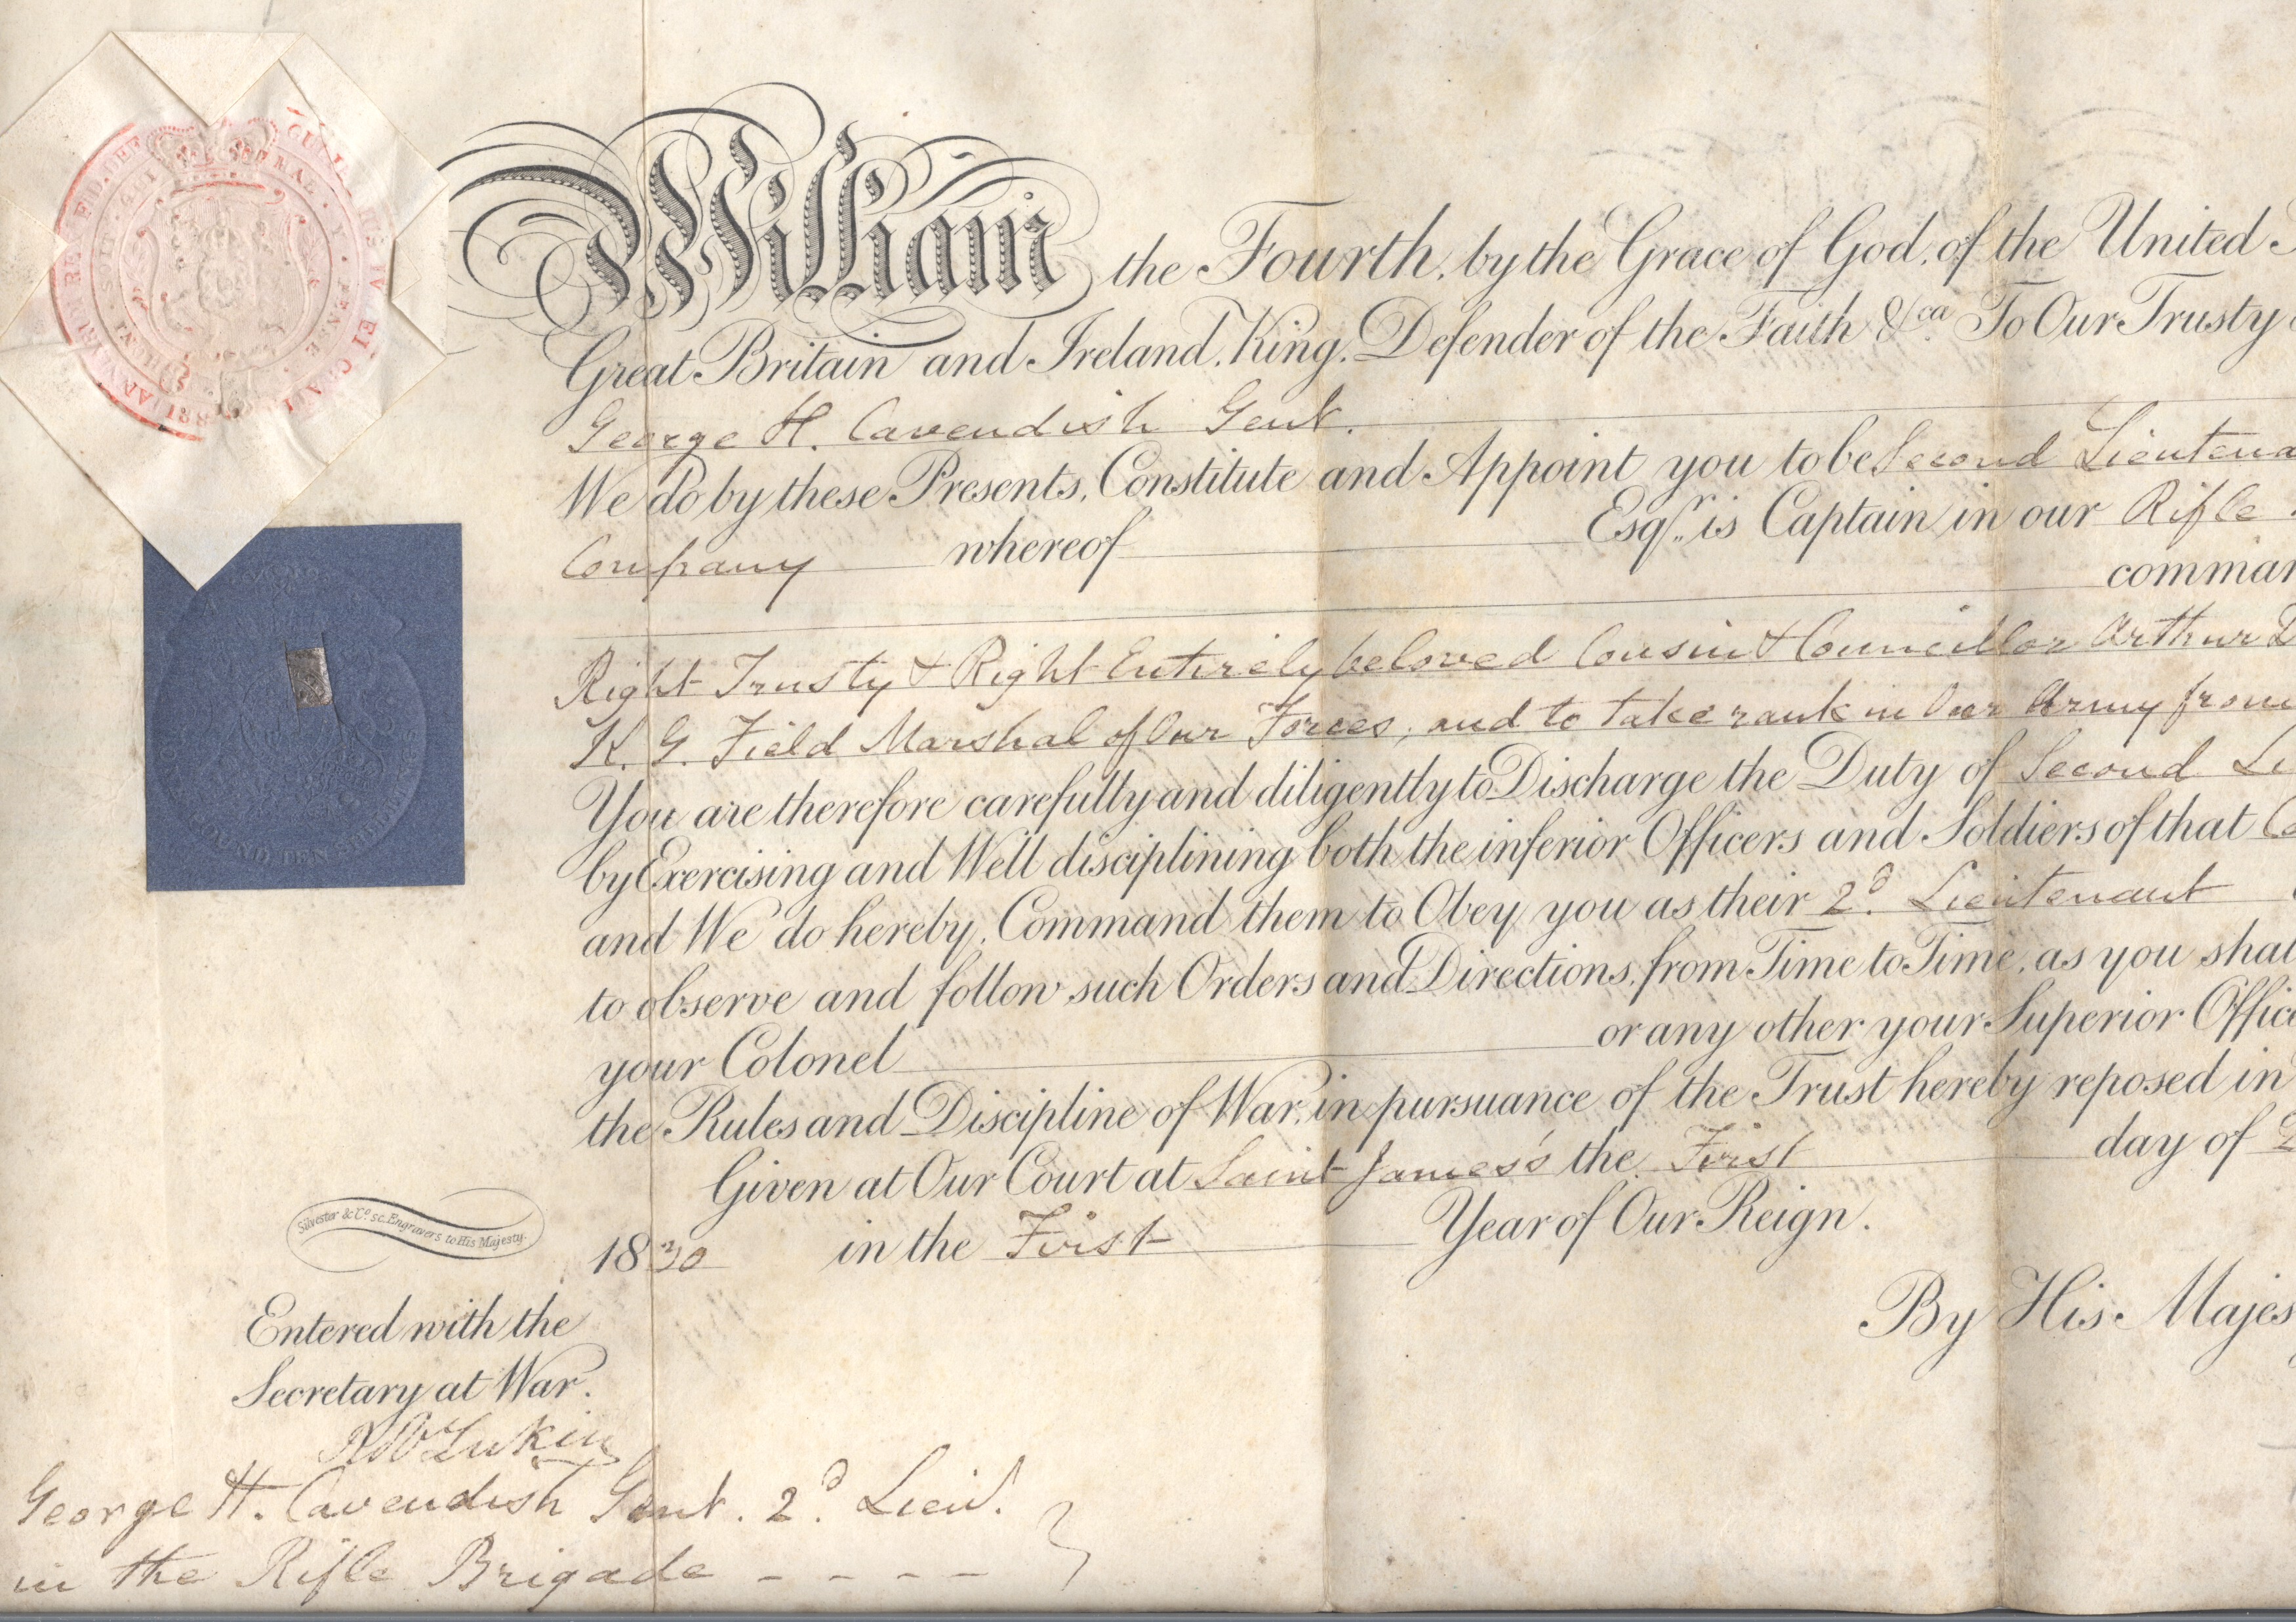 William the Fourth, by the Grace of God, of the United
Great Britain and Ireland, King, Defender of the Faith &ca To Our Trusty
George H. Cavendish Gent.
We do by these Presents, Constitute and Appoint you to be Second Lieutena
Company whereof Esqr. is Captain in our Rifle
comman
Right Trusty & Right Entirely beloved Cousin & Councillor Arthur D
K. G. Field Marshal of Our Forces, and to take rank in Our Army from
You are therefore carefully and diligently to Discharge the Duty of Second Li
by Exercising and Well disciplining both the inferior Officers and Soldiers of that Co
and We do hereby, Command them to Obey you as their 2d. Lieutenant
to observe and follow such Orders and Directions, from Time to Time, as you shal
your Colonel or any other your Superior Offic
the Rules and Discipline of War, in pursuance of the Trust hereby reposed in
Given at Our Court at Saint James's the First day of
1830 in the First Year of Our Reign.
By His Majes
Silvester & Co. sc. Engravers to His Majesty.
Entered with the
Secretary at War.
Lukin
George H. Cavendish Gent. 2d. Lieut.
in the Rifle Brigade - - - -